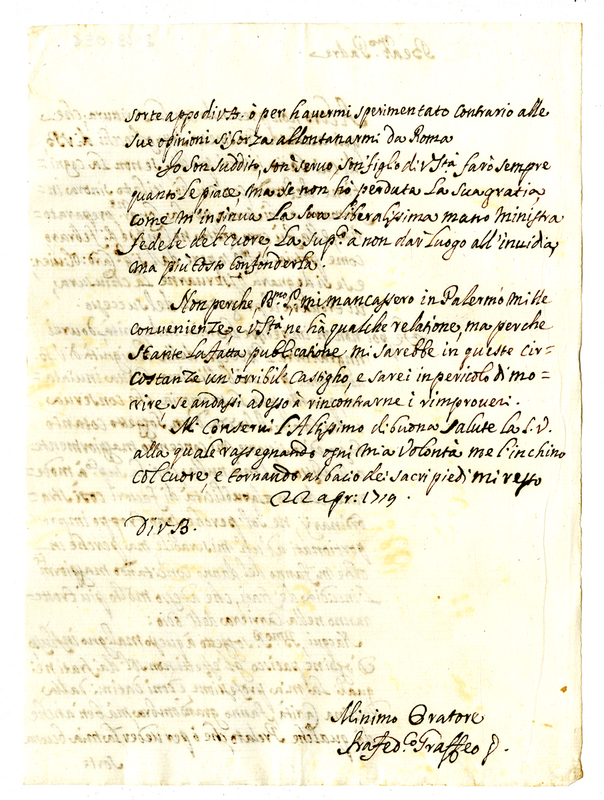 sorte appo di V.B. ò per havermi sperimentato contrario alle
sue opinioni si forza allontanarmi da Roma
Io son suddito, son servo, son figlio di V. Stà farò sempre
quanto le piace, ma se non hò perduta la sua gratia,
come m'insinua la sua liberalissima mano ministra
fedele del cuore, la supco à non dar luogo all'invidia,
ma più tosto confonderla.
Non perche, Bmo Pe, mi mancassero in Palermo mille
convenienze, e V. Stà ne hà qualche relatione, ma perche
stante la fatta publicatione mi sarebbe in queste cir=
costanze un'orribile castigho, e sarei in pericolo di mo=
rire, se andassi adesso à rincontrarne i rimproveri.
Mi conservi l'Altissimo di buona salute la S.V.
alla quale rassegnando ogni mia volontà me l'inchino
col cuore, e tornando al bacio dei sacri piedi mi resto
22 apr: 1719.
Di V.B.
Minimo Oratore
fra fedco Graffeo